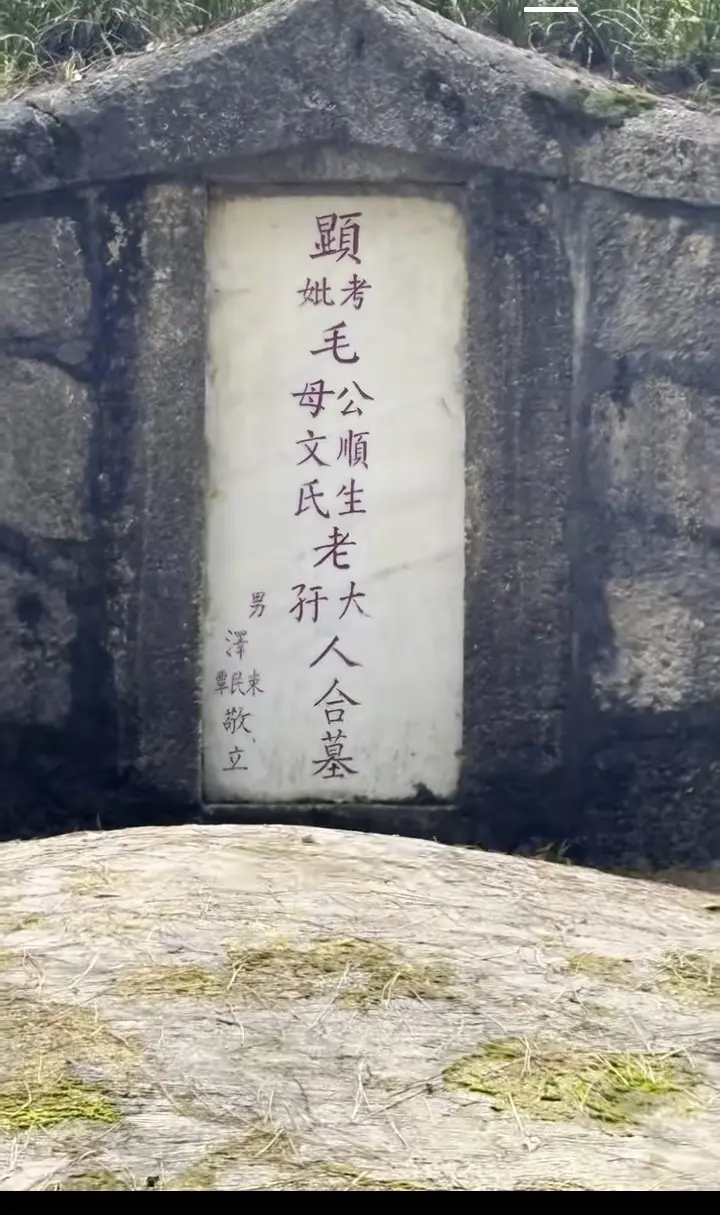 顯
考妣
毛
公順生
母文氏
老
大孺
人合墓
男
澤
東民覃
敬立